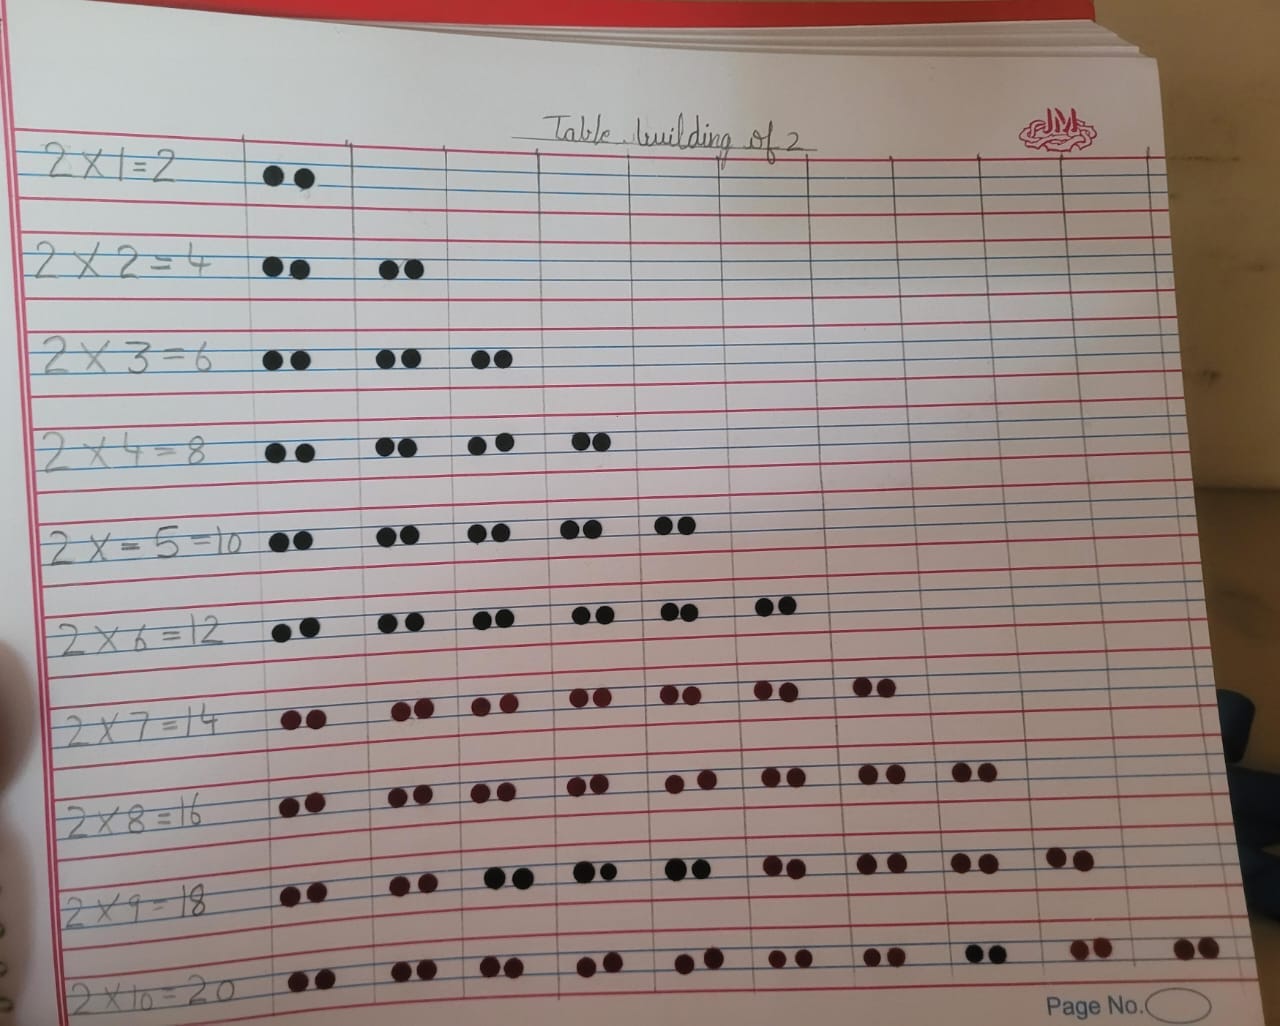 Table building of 2
JM
2 X 1 = 2
2 X 2 = 4
2 X 3 = 6
2 X 4 = 8
2 X = 5 = 10
2 X 6 = 12
2 X 7 = 14
2 X 8 = 16
2 X 9 = 18
2 X 10 = 20
Page No.